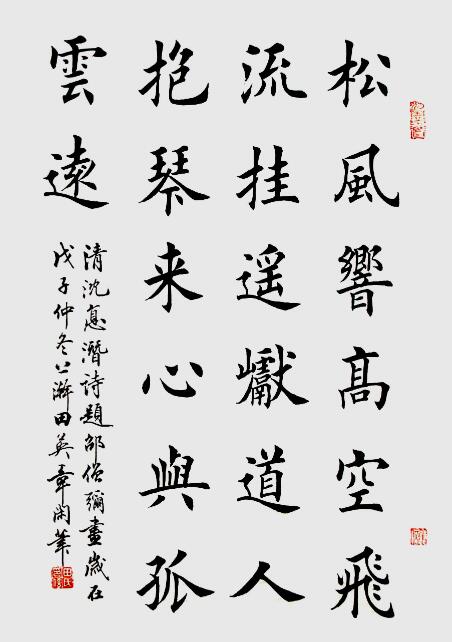 松風響高空飛
流挂遥巘道人
抱琴来心與孤
雲遠
清沈悳潛詩題邵僧彌畫歲在
戊子仲冬上澣田英章閑筆